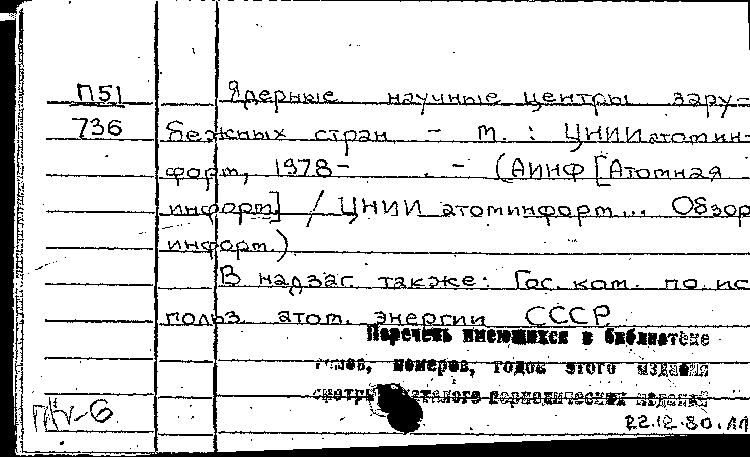 П51 Ядерные научные центры зару-
736 бежных стран. - М. : ЦНИИатомин-
форм, 1978 - . - (АИНФ [Атомная
информ] / ЦНИИ атоминформ... Обзор.
информ.)
В надзаг. также: Гос. ком. по ис-
польз. атом. энергии СССР
Перечень имеющихся в библиотеке
томов, номеров, годов этого издания
смотри каталоге периодических изданий
22.12.80.